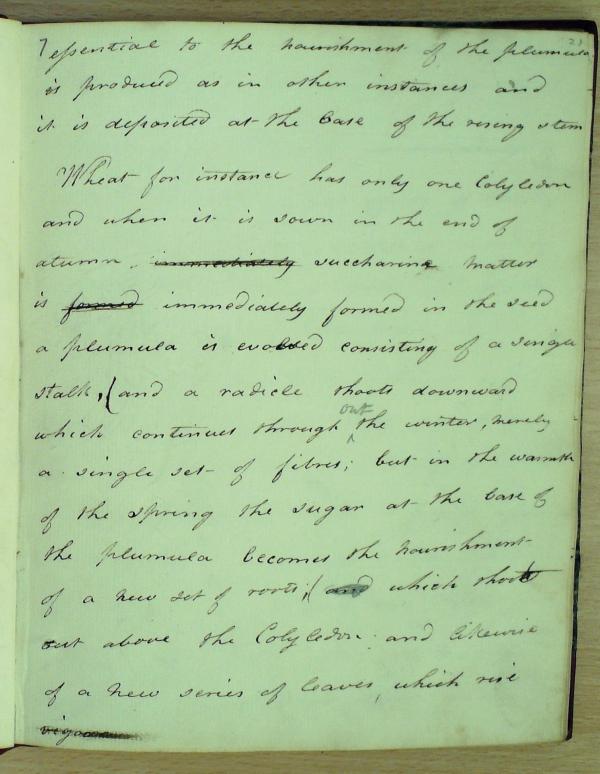 7 essential to the nourishment of the plumula 21
is produced as in other instances and
it is deposited at the base of the rising stem
Wheat for instance has only one Cotyledon
and when it is sown in the end of
atumn, immediately saccharine matter
is formed immediately formed in the seed
a plumula is evolved consisting of a single
stalk, (and a radicle shoots downward
out
which continues through the winter, merely
a single set of fibres; but in the warmth
of the spring the sugar at the base of
the plumula becomes the nourishment
of a new set of roots; (and which shoot
out above the Cotyledon; and likewise
of a new series of leaves, which rise